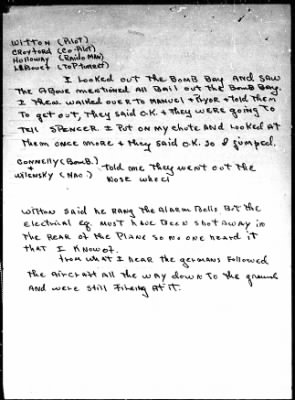 WITTON (PILOT)
CROYFORD (CO-PILOT)
HOLLOWAY (RAIDO MAN)
(TOP TURRET)
I LOOKED OUT THE BOMB BAY AND SAW
THE ABOVE MENTIONED ALL BAIL OUT THE BOMB BAY.
I THEN WALKED OVER TO MANUEL & PRYOR & TOLD THEM
TO GET OUT, THEY SAID O.K. & THEY WERE GOING TO
TELL SPENCER. I PUT ON MY CHUTE AND LOOKED AT
THEM ONCE MORE & THEY SAID O.K. SO I JUMPED.
CONNELLY (BOMB.)
+ TOLD ME THEY WENT OUT THE
WILENSKY (NAV.) NOSE WHEEL
WITTON SAID HE RANG THE ALARM BELLS BUT THE
ELECTRICAL EQ. MUST HAVE BEEN SHOT AWAY IN
THE REAR OF THE PLANE SO NO ONE HEARD IT
THAT I KNOW OF.
FROM WHAT I HEAR THE GERMANS FOLLOWED
THE AIRCRAFT ALL THE WAY DOWN TO THE GROUND
AND WERE STILL FIREING AT IT.